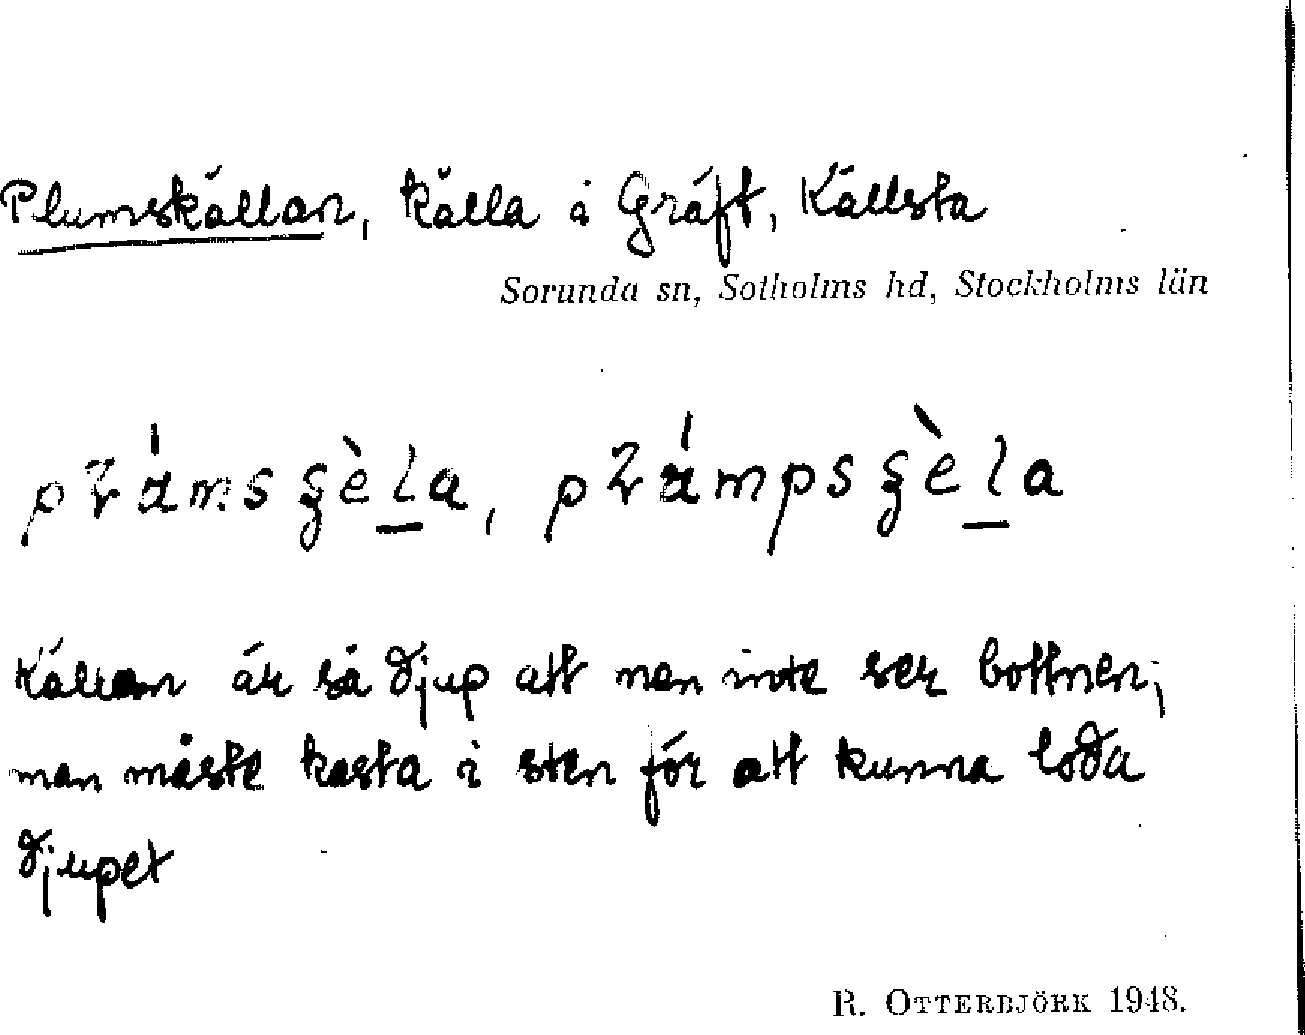 Plumskällan, källa i Gräft, Källsta
Sorunda sn, Sotholms hd, Stockholms län
Källan är så djup att man inte ser bottnen;
man måste kasta i sten för att kunna loda
djupet
R. OTTERBJÖRK 1948.